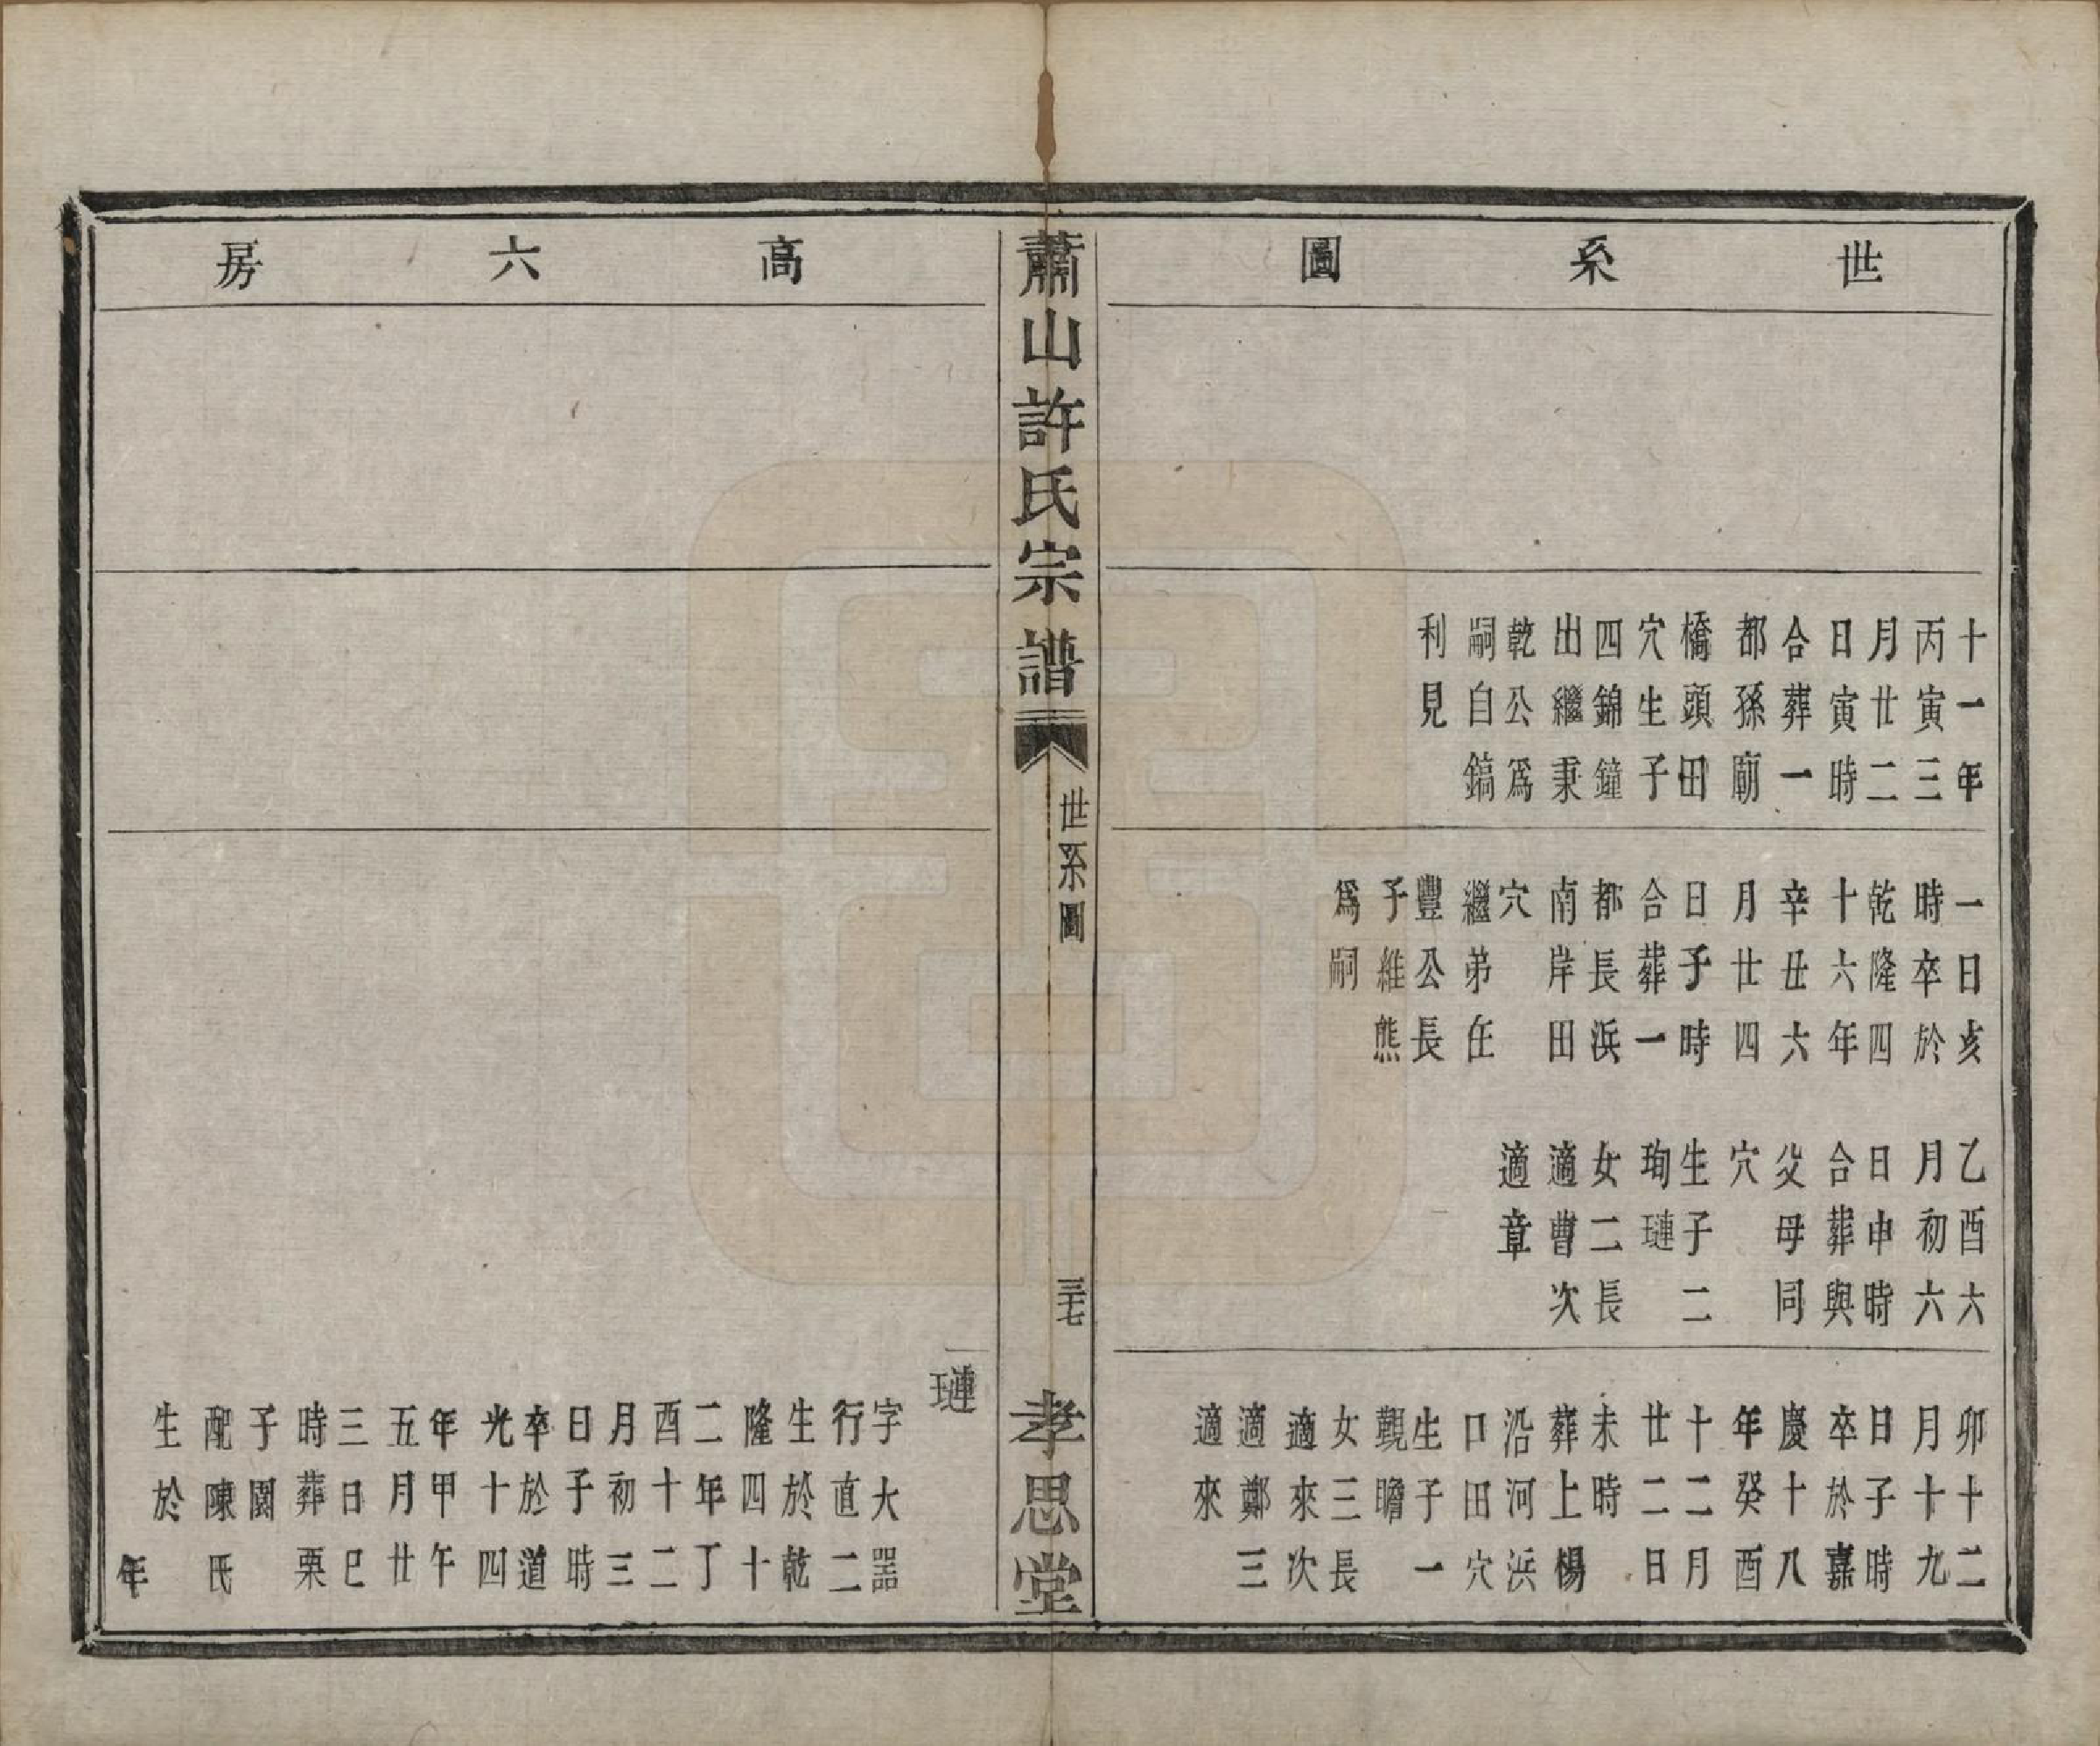 世系圖
十一年
丙寅三
月廿二
日寅時
合葬一
都孫廟
橋頭田
穴生子
四錦鐘
出繼秉
乾公爲
嗣自鎬
利見
一日亥
時卒於
乾隆四
十六年
辛丑六
月廿四
日子時
合葬一
都長浜
南岸田
穴
繼弟任
豐公長
子維熊
爲嗣
乙酉六
月初六
日申時
合葬與
父母同
穴
生子二
珣璉
女二長
適曹次
適章
卯十二
月十九
日子時
卒於嘉
慶十八
年癸酉
十二月
廿二日
未時
葬上楊
沿河浜
口田穴
生子一
觀瞻
女三長
適來次
適鄭三
適來
蕭山許氏宗譜
世系圖
三七
孝思堂
高六房
璉
字大器
行直二
生於乾
隆四十
二年丁
酉十二
月初三
日子時
卒於道
光十四
年甲午
五月廿
三日巳
時葬栗
子園
配陳氏
生於
年